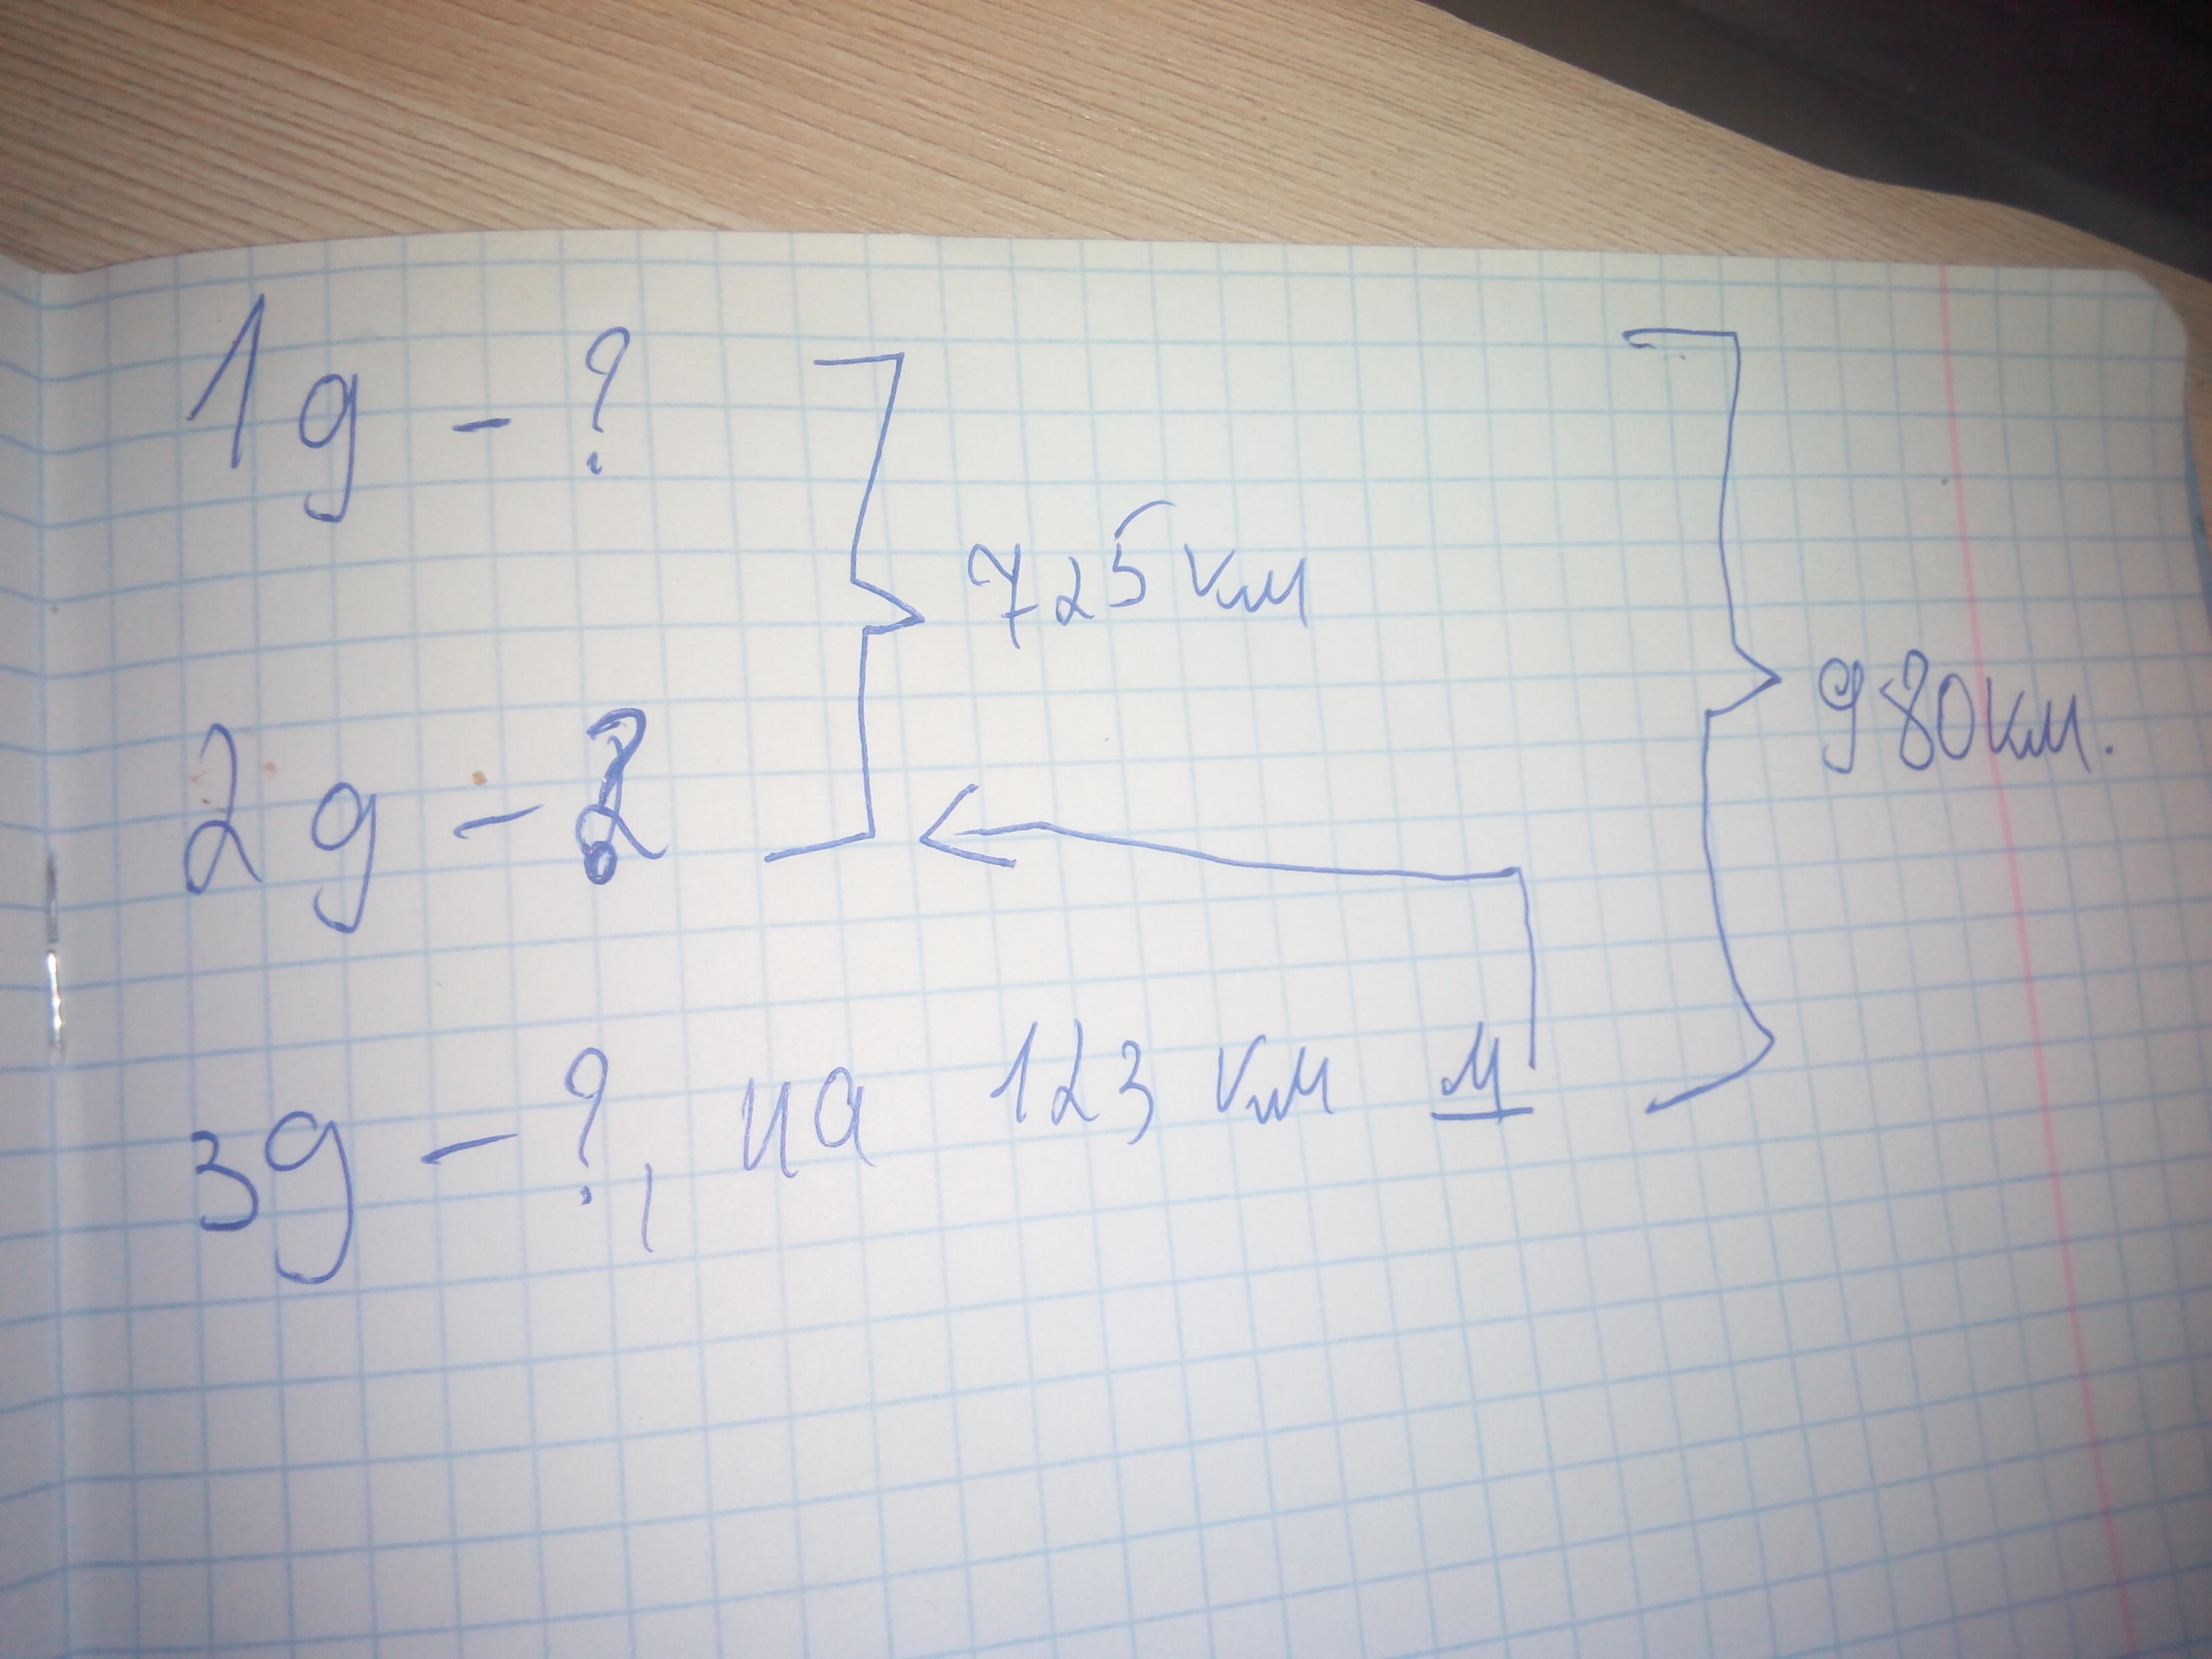 1д - ?
725 км
980 км.
2д - ?
3д - ?, на 123 км м